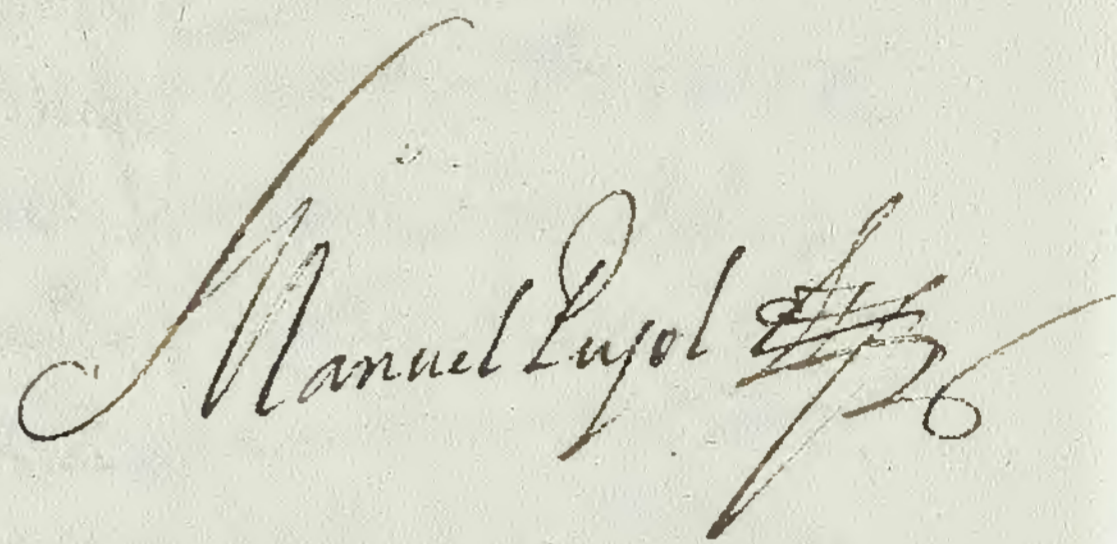 Manuel Pujol